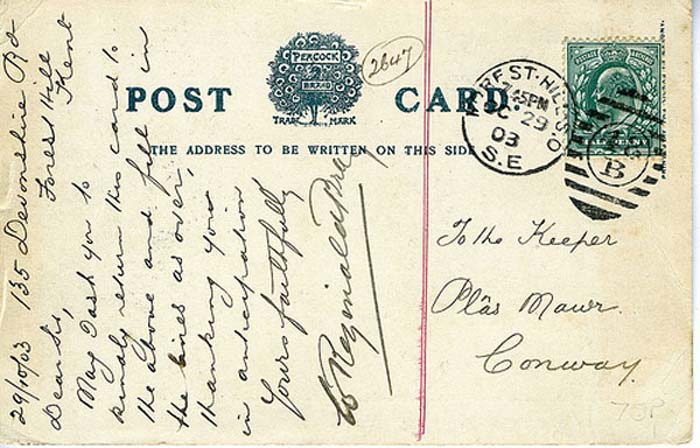 PEACOCK
BRAND
TRADE MARK
POST CARD.
THE ADDRESS TO BE WRITTEN ON THIS SIDE
2647
29/10/03 135 Devonshire Rd
Forest Hill
Kent
Dear Sir,
May I ask you to
kindly return this card to
the above and fill in
the lines as over,
thanking you
in anticipation
Yours faithfully
W Reginald Bray
FOREST-HILL S.O
7.45PM
OC 29
03
S.E
B
POSTAGE
HALF PENNY
To the Keeper
Plâs Mawr.
Conway.